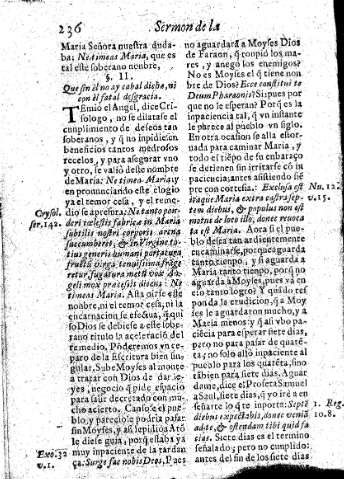 236
Sermon de la
Maria Señora nuestra duda-
ba; Ne timeas Maria, que es
tal este soberano nombre,
§. II.
Que sin èl no ay cabal dicha, ni
con èl fatal desgracia.
TEmiò el Angel, dice Cri-
sologo, no se dilatase el
cumplimiento de deseos tan
soberanos, y q̃ no inpidiesen
beneficios tantos medrosos
recelos, y para asegurar vno
y otro, se valiò deste nombre
de Maria: Ne timeas Maria: y
en pronunciando este elogio
ya el temor cesa, y el reme-
dio se apresura: Ne tanto por-
deri cœlestis fabricæ in Maria
subtilis nostri corporis arena
succumberet, & in Virgine to-
tius generis humani portatura
fructũ virga tenuissima frãge
retur, fugatura metũ vox An-
geli mox præcessit dicens: Ne
timeas Maria. Asta oirse este
nombre, ni el temor cesa, ni la
encarnacion se efectua, quisò
Dios se debiese a este sobe-
rano titulo la aceleraciõ del
remedio. Põderemos vn re-
paro de la Escritura bien sin-
gular. Sube Moyses al monte
a tratar con Dios de dar le-
yes, negocio q̃ pide espacio
para salir decretado con mu-
cho acierto. Cansose el pue-
blo, y pareciole podria pasar
sin Moyses, y asi le pidiò a Arõ
le diese guia, porq̃ estaba ya
muy inpaciente de la tardan
ça. Surge fac nobis Deos, Pues
Crysol.
ser. 142.
Exo. 32
v. 1.
no aguardarà a Moyses Dios
de Faraon, q̃ rompiò los ma-
res, y anegò los enemigos?
No es Moyses el q̃ tiene nom
bre de Dios? Ecce constitui te
Deum Pharaonis? Si pues por
que no le esperan? Porq̃ es la
inpaciencia tal, q̃ vn instante
le parece al pueblo vn siglo.
En otra ocasion se alla estor-
uada para caminar Maria, y
todo el tiẽpo de su enbaraço
se detienen sin irritarse cõ in
paciencia: antes asistiendo siẽ
pre con cortesia. Exclusa est
itaque Maria extra castra sep-
tem diebus, & populus non est
motus de loco illo, donec revoca
ta est Maria. Aora si el pue-
blo desea tan ardientemente
encaminarse, porque aguarda
tanto tiempo, y si aguarda a
Maria tanto tiempo, porq̃ no
aguarda a Moyses, pues và en
ello tanto logro? Y quizà res
ponda la erudicion, q̃ a Moy
ses le aguardaron mucho, y a
Maria menos: y q̃ asi vbo pa-
ciẽcia para esperar siete dias,
pero no para pasar de quarẽ-
ta; no solo allò inpaciente al
pueblo para los quarẽta, sino
tãbien para siete dias. Aguar
dame, dice el Profeta Samuel
a Saul, siete dias, q̃ yo irè a en
señarte lo q̃ te inporta: Septẽ
diebus expectabis, donec veniã
ad te, & ostendam tibi quid fa
cias. Siete dias es el termino
señalado; pero no cumplido:
antes del fin de los siete dias
Nu. 12.
v. 15.
1. Reg.
10. 8.